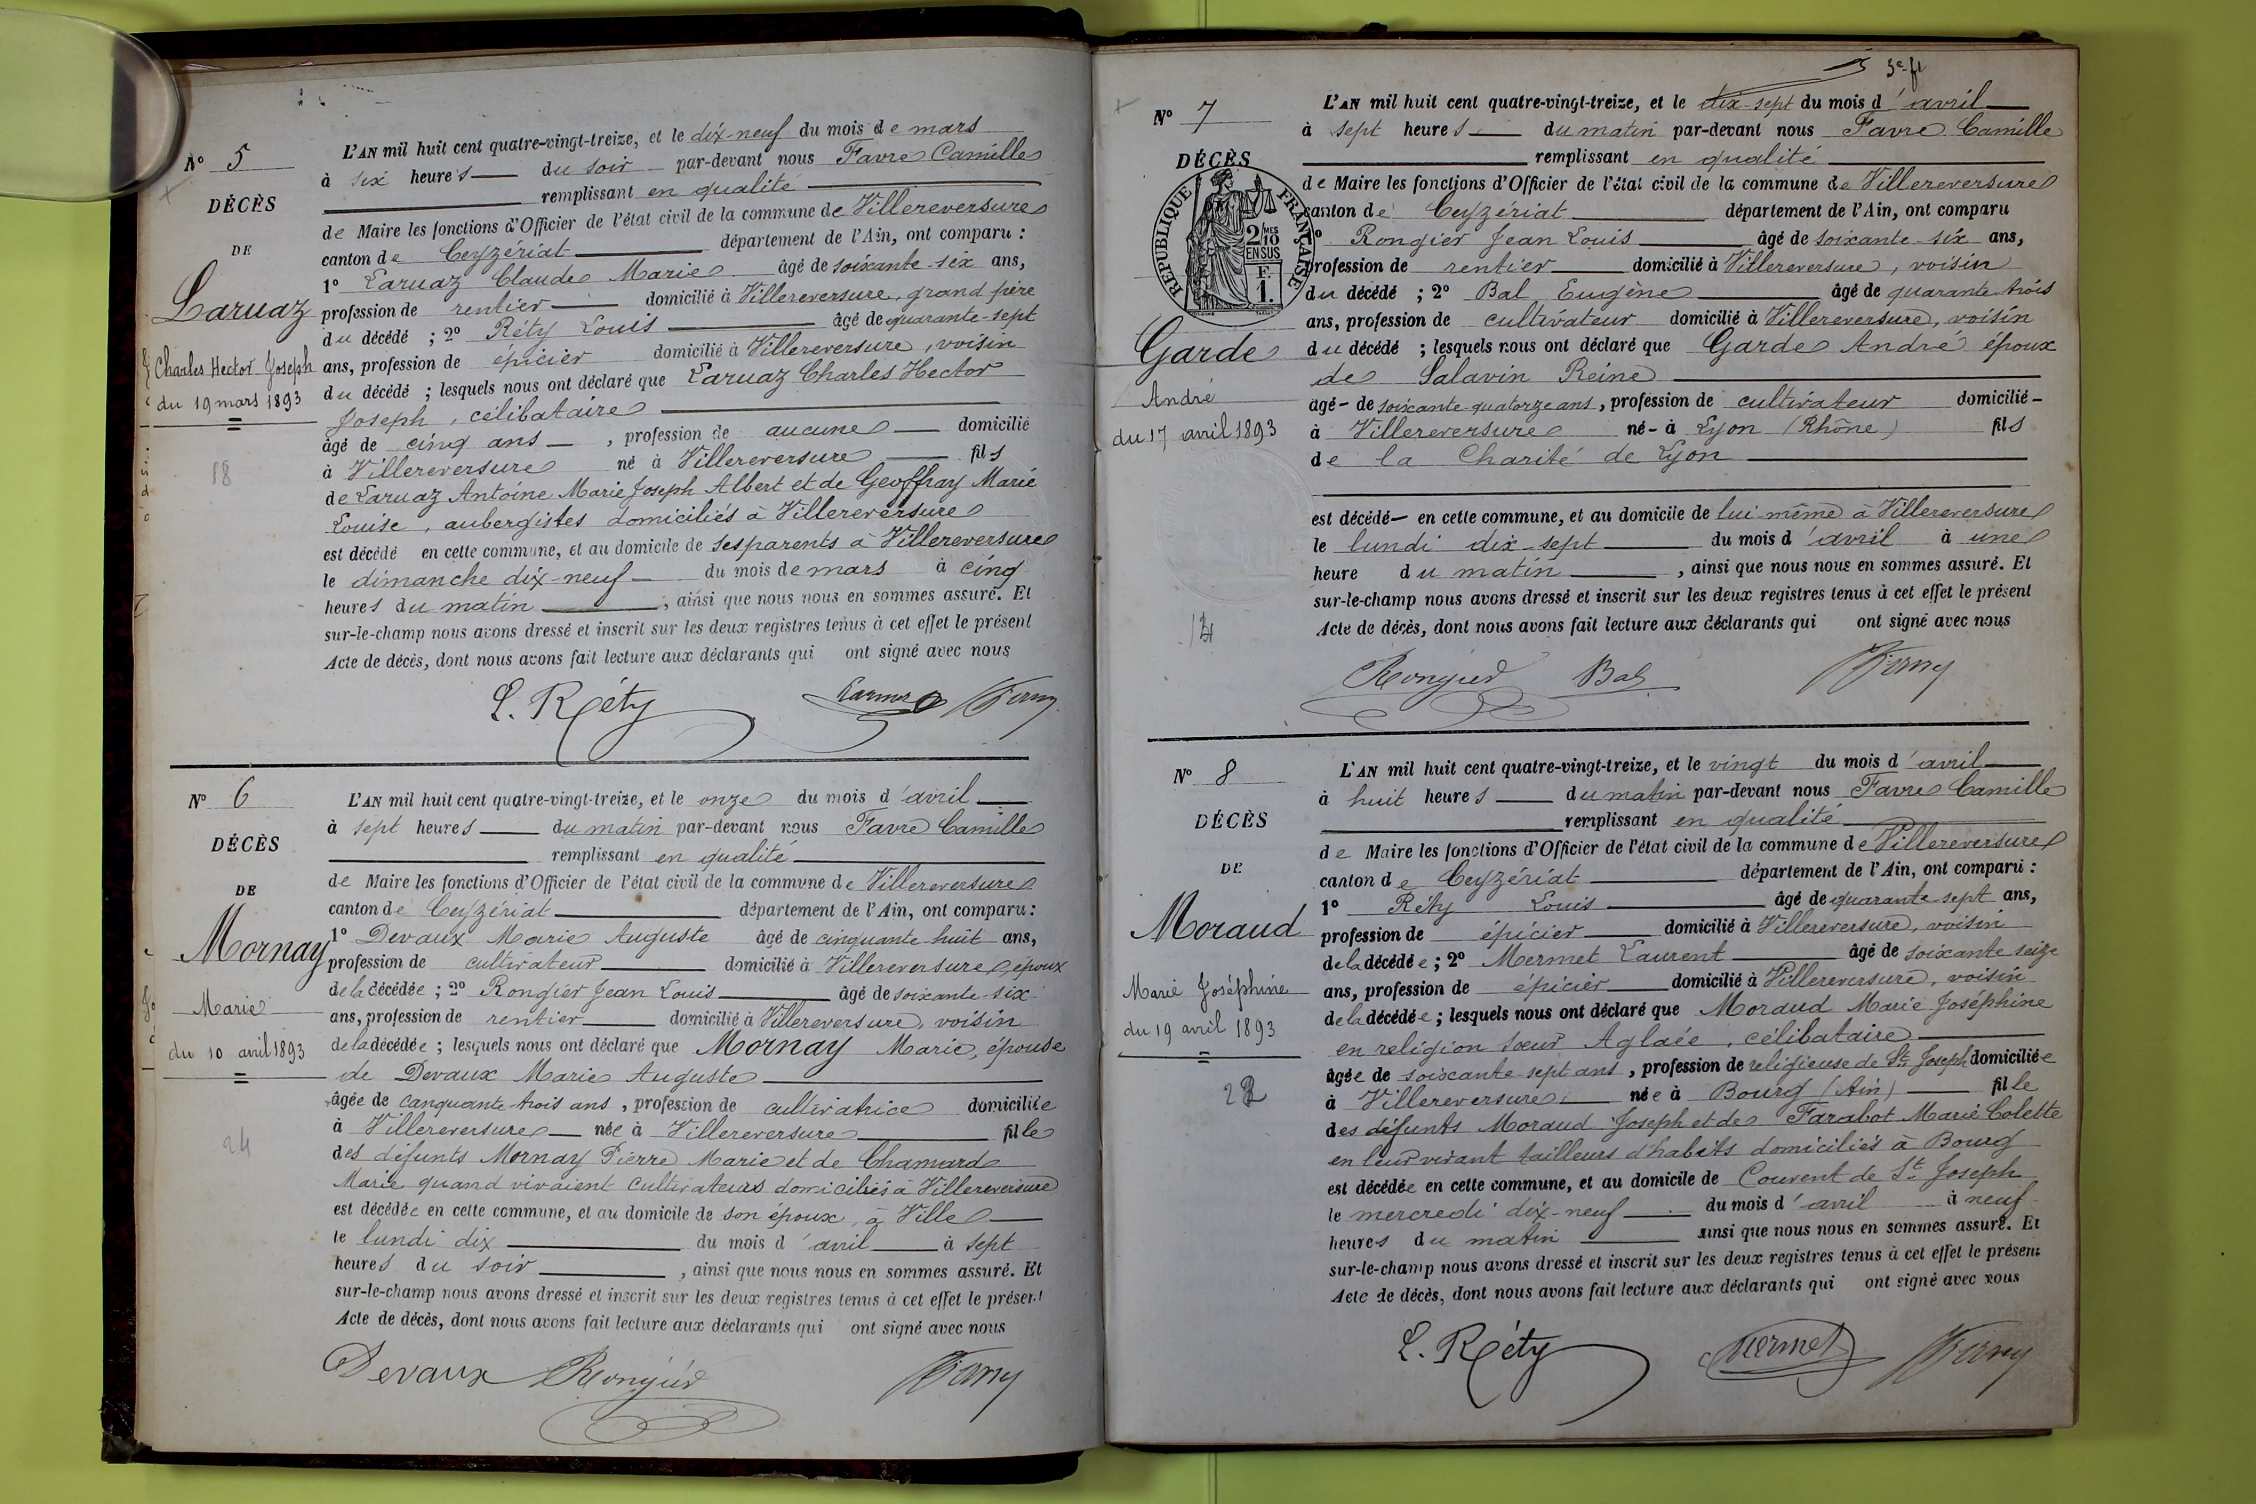 N° 5
DÉCÈS
DE
Laruaz
Charles Hector Joseph
du 19 mars 1893
18
L'AN mil huit cent quatre-vingt-treize, et le dix-neuf du mois de mars
à six heures du soir par-devant nous Favre Camille
remplissant en qualité
de Maire les fonctions d'Officier de l'état civil de la commune de Villereversure
canton de Ceyzériat département de l'Ain, ont comparu :
1° Laruaz Claude Marie âgé de soixante-six ans,
profession de rentier domicilié à Villereversure, grand père
du décédé ; 2° Réty Louis âgé de quarante-sept
ans, profession de épicier domicilié à Villereversure, voisin
du décédé ; lesquels nous ont déclaré que Laruaz Charles Hector
Joseph, célibataire
âgé de cinq ans, profession de aucune domicilié
à Villereversure né à Villereversure fils
de Laruaz Antoine Marie Joseph Albert et de Geoffray Marie
Louise, aubergistes domiciliés à Villereversure
est décédé en cette commune, et au domicile de ses parents à Villereversure
le dimanche dix-neuf du mois de mars à cinq
heures du matin, ainsi que nous nous en sommes assuré. Et
sur-le-champ nous avons dressé et inscrit sur les deux registres tenus à cet effet le présent
Acte de décès, dont nous avons fait lecture aux déclarants qui ont signé avec nous
L. Réty
N° 6
DÉCÈS
DE
Mornay
Marie
du 10 avril 1893
24
L'AN mil huit cent quatre-vingt-treize, et le onze du mois d'avril
à sept heures du matin par-devant nous Favre Camille
remplissant en qualité
de Maire les fonctions d'Officier de l'état civil de la commune de Villereversure
canton de Ceyzériat département de l'Ain, ont comparu :
1° Devaux Marie Auguste âgé de cinquante huit ans,
profession de cultivateur domicilié à Villereversure, époux
de la décédée ; 2° Rongier Jean Louis âgé de soixante-six
ans, profession de rentier domicilié à Villereversure, voisin
de la décédée ; lesquels nous ont déclaré que Mornay Marie, épouse
de Devaux Marie Auguste
âgée de canquante trois ans, profession de cultivatrice domiciliée
à Villereversure née à Villereversure fille
des défunts Mornay Pierre Marie et de Chamard
Marie quand vivaient cultivateurs domiciliés à Villereversure
est décédée en cette commune, et au domicile de son époux, à Ville
le lundi dix du mois d'avril à sept
heures du soir, ainsi que nous nous en sommes assuré. Et
sur-le-champ nous avons dressé et inscrit sur les deux registres tenus à cet effet le présent
Acte de décès, dont nous avons fait lecture aux déclarants qui ont signé avec nous
Devaux Rongier
N° 7
DÉCÈS
RÉPUBLIQUE FRANÇAISE
2/10 MES
EN SUS
F.
1.
Garde
André
du 17 avril 1893
L'AN mil huit cent quatre-vingt-treize, et le dix-sept du mois d'avril
à sept heures du matin par-devant nous Favre Camille
remplissant en qualité
de Maire les fonctions d'Officier de l'état civil de la commune de Villereversure
canton de Ceyzériat département de l'Ain, ont comparu
Rongier Jean Louis âgé de soixante-six ans,
profession de rentier domicilié à Villereversure, voisin
du décédé ; 2° Bal Eugène âgé de quarante trois
ans, profession de cultivateur domicilié à Villereversure, voisin
du décédé ; lesquels nous ont déclaré que Garde André époux
de Salavin Reine
âgé de soixante quatorze ans, profession de cultivateur domicilié
à Villereversure né à Lyon (Rhône) fils
de la Charité de Lyon
est décédé en cette commune, et au domicile de lui même à Villereversure
le lundi dix-sept du mois d'avril à une
heure du matin, ainsi que nous nous en sommes assuré. Et
sur-le-champ nous avons dressé et inscrit sur les deux registres tenus à cet effet le présent
Acte de décès, dont nous avons fait lecture aux déclarants qui ont signé avec nous
Rongier Bal
N° 8
DÉCÈS
DE
Moraud
Marie Joséphine
du 19 avril 1893
L'AN mil huit cent quatre-vingt-treize, et le vingt du mois d'avril
à huit heures du matin par-devant nous Favre Camille
remplissant en qualité
de Maire les fonctions d'Officier de l'état civil de la commune de Villereversure
canton de Ceyzériat département de l'Ain, ont comparu :
1° Réty Louis âgé de quarante sept ans,
profession de épicier domicilié à Villereversure, voisin
de la décédée ; 2° Mermet Laurent âgé de soixante seize
ans, profession de épicier domicilié à Villereversure, voisin
de la décédée ; lesquels nous ont déclaré que Moraud Marie Joséphine
en religion sœur Aglaée, célibataire
âgée de soixante sept ans, profession de religieuse de St Joseph domiciliée
à Villereversure née à Bourg (Ain) fille
des défunts Moraud Joseph et de Farabot Marie Colette
en leur vivant tailleurs d'habits domiciliés à Bourg
est décédée en cette commune, et au domicile de Couvent de St Joseph
le mercredi dix-neuf du mois d'avril à neuf
heures du matin ainsi que nous nous en sommes assuré. Et
sur-le-champ nous avons dressé et inscrit sur les deux registres tenus à cet effet le présent
Acte de décès, dont nous avons fait lecture aux déclarants qui ont signé avec nous
L. Réty Mermet